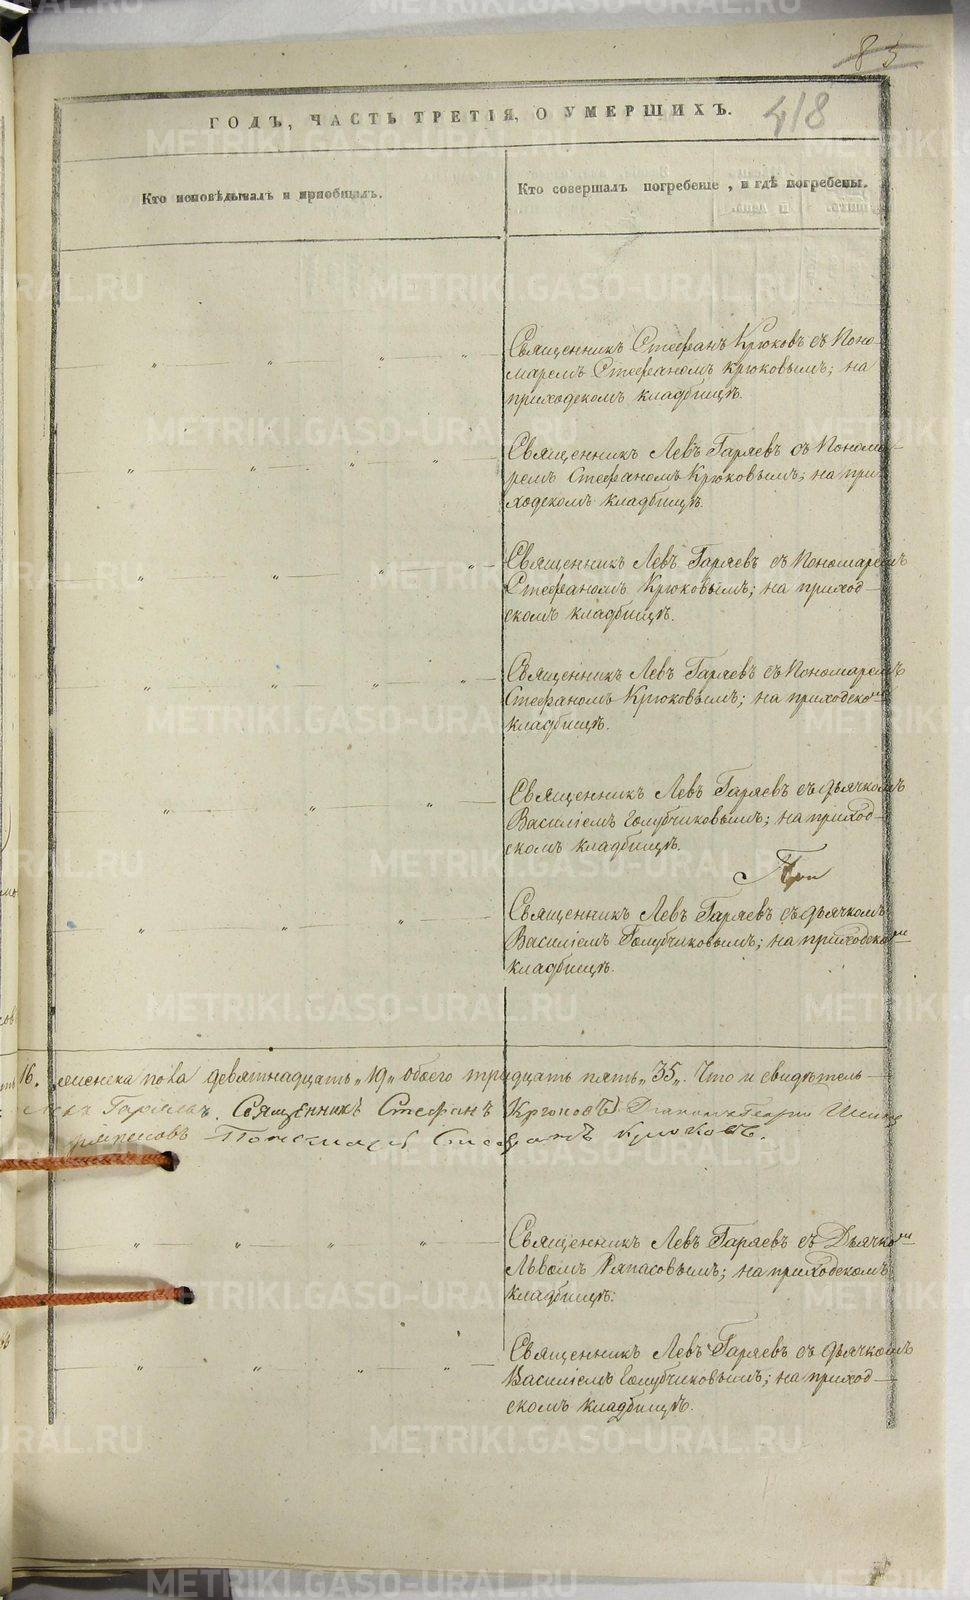 85
ГОДЪ, ЧАСТЬ ТРЕТІЯ, О УМЕРШИХЪ.
418
Кто исповѣдывалъ и пріобщалъ.
Кто совершалъ погребеніе, и гдѣ погребены.
Священникъ Стефанъ Крюковъ съ Поно-
маремъ Стефаномъ Крюковымъ; на
приходскомъ кладбищѣ.
Священникъ Левъ Гаряевъ съ Понома-
ремъ Стефаномъ Крюковымъ; на при-
ходскомъ кладбищѣ.
Священникъ Левъ Гаряевъ съ Пономаремъ
Стефаномъ Крюковымъ; на приход-
скомъ кладбищѣ.
Священникъ Левъ Гаряевъ съ Пономаремъ
Стефаномъ Крюковымъ; на приходскомъ
кладбищѣ.
Священникъ Левъ Гаряевъ съ дьячкомъ
Василіемъ Голубчиковымъ; на приход-
скомъ кладбищѣ.
При
Священникъ Левъ Гаряевъ съ дьячкомъ
Василіемъ Голубчиковымъ; на приходскомъ
кладбищѣ.
16. женска пола девятнадцать „19„ обоего тридцать пять „35„. Что и свидѣтель-
Гаряевъ. Священникъ Стефанъ Крюковъ. Діаконъ Георгій
Пономарь Стефанъ Крюковъ.
Священникъ Левъ Гаряевъ съ Дьячкомъ
Львомъ Ряпасовымъ; на приходскомъ
кладбищѣ.
Священникъ Левъ Гаряевъ съ дьячкомъ
Василіемъ Голубчиковымъ; на приход-
скомъ кладбищѣ.
METRIKI.GASO-URAL.RU